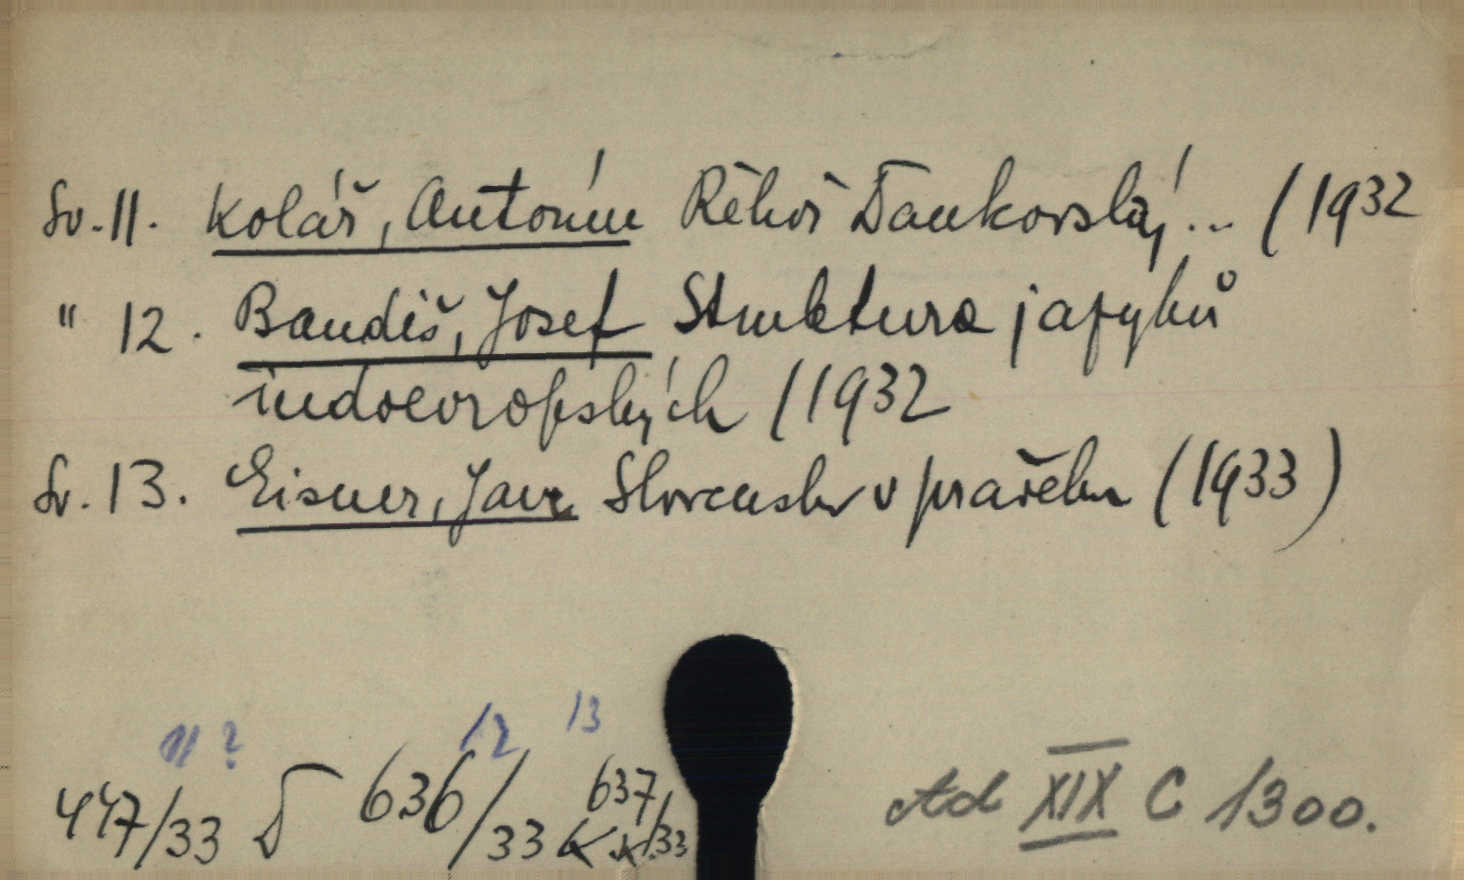 Sv. 11. Kolář, Antonín Řehoř Dankovský... (1932
" 12. Baudiš, Josef Struktura jazyků
indoevropských (1932
Sv. 13. Eisner, Jan Slovensko v pravěku (1933)
11? 12 13
447/33 D 636/33 637/33
Ad XIX C 1300.